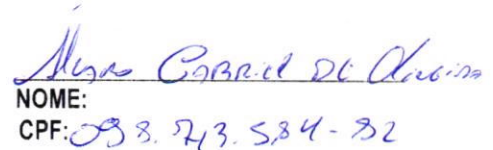 Álvaro Gabriel de Oliveira
NOME:
CPF: 098.743.584-92